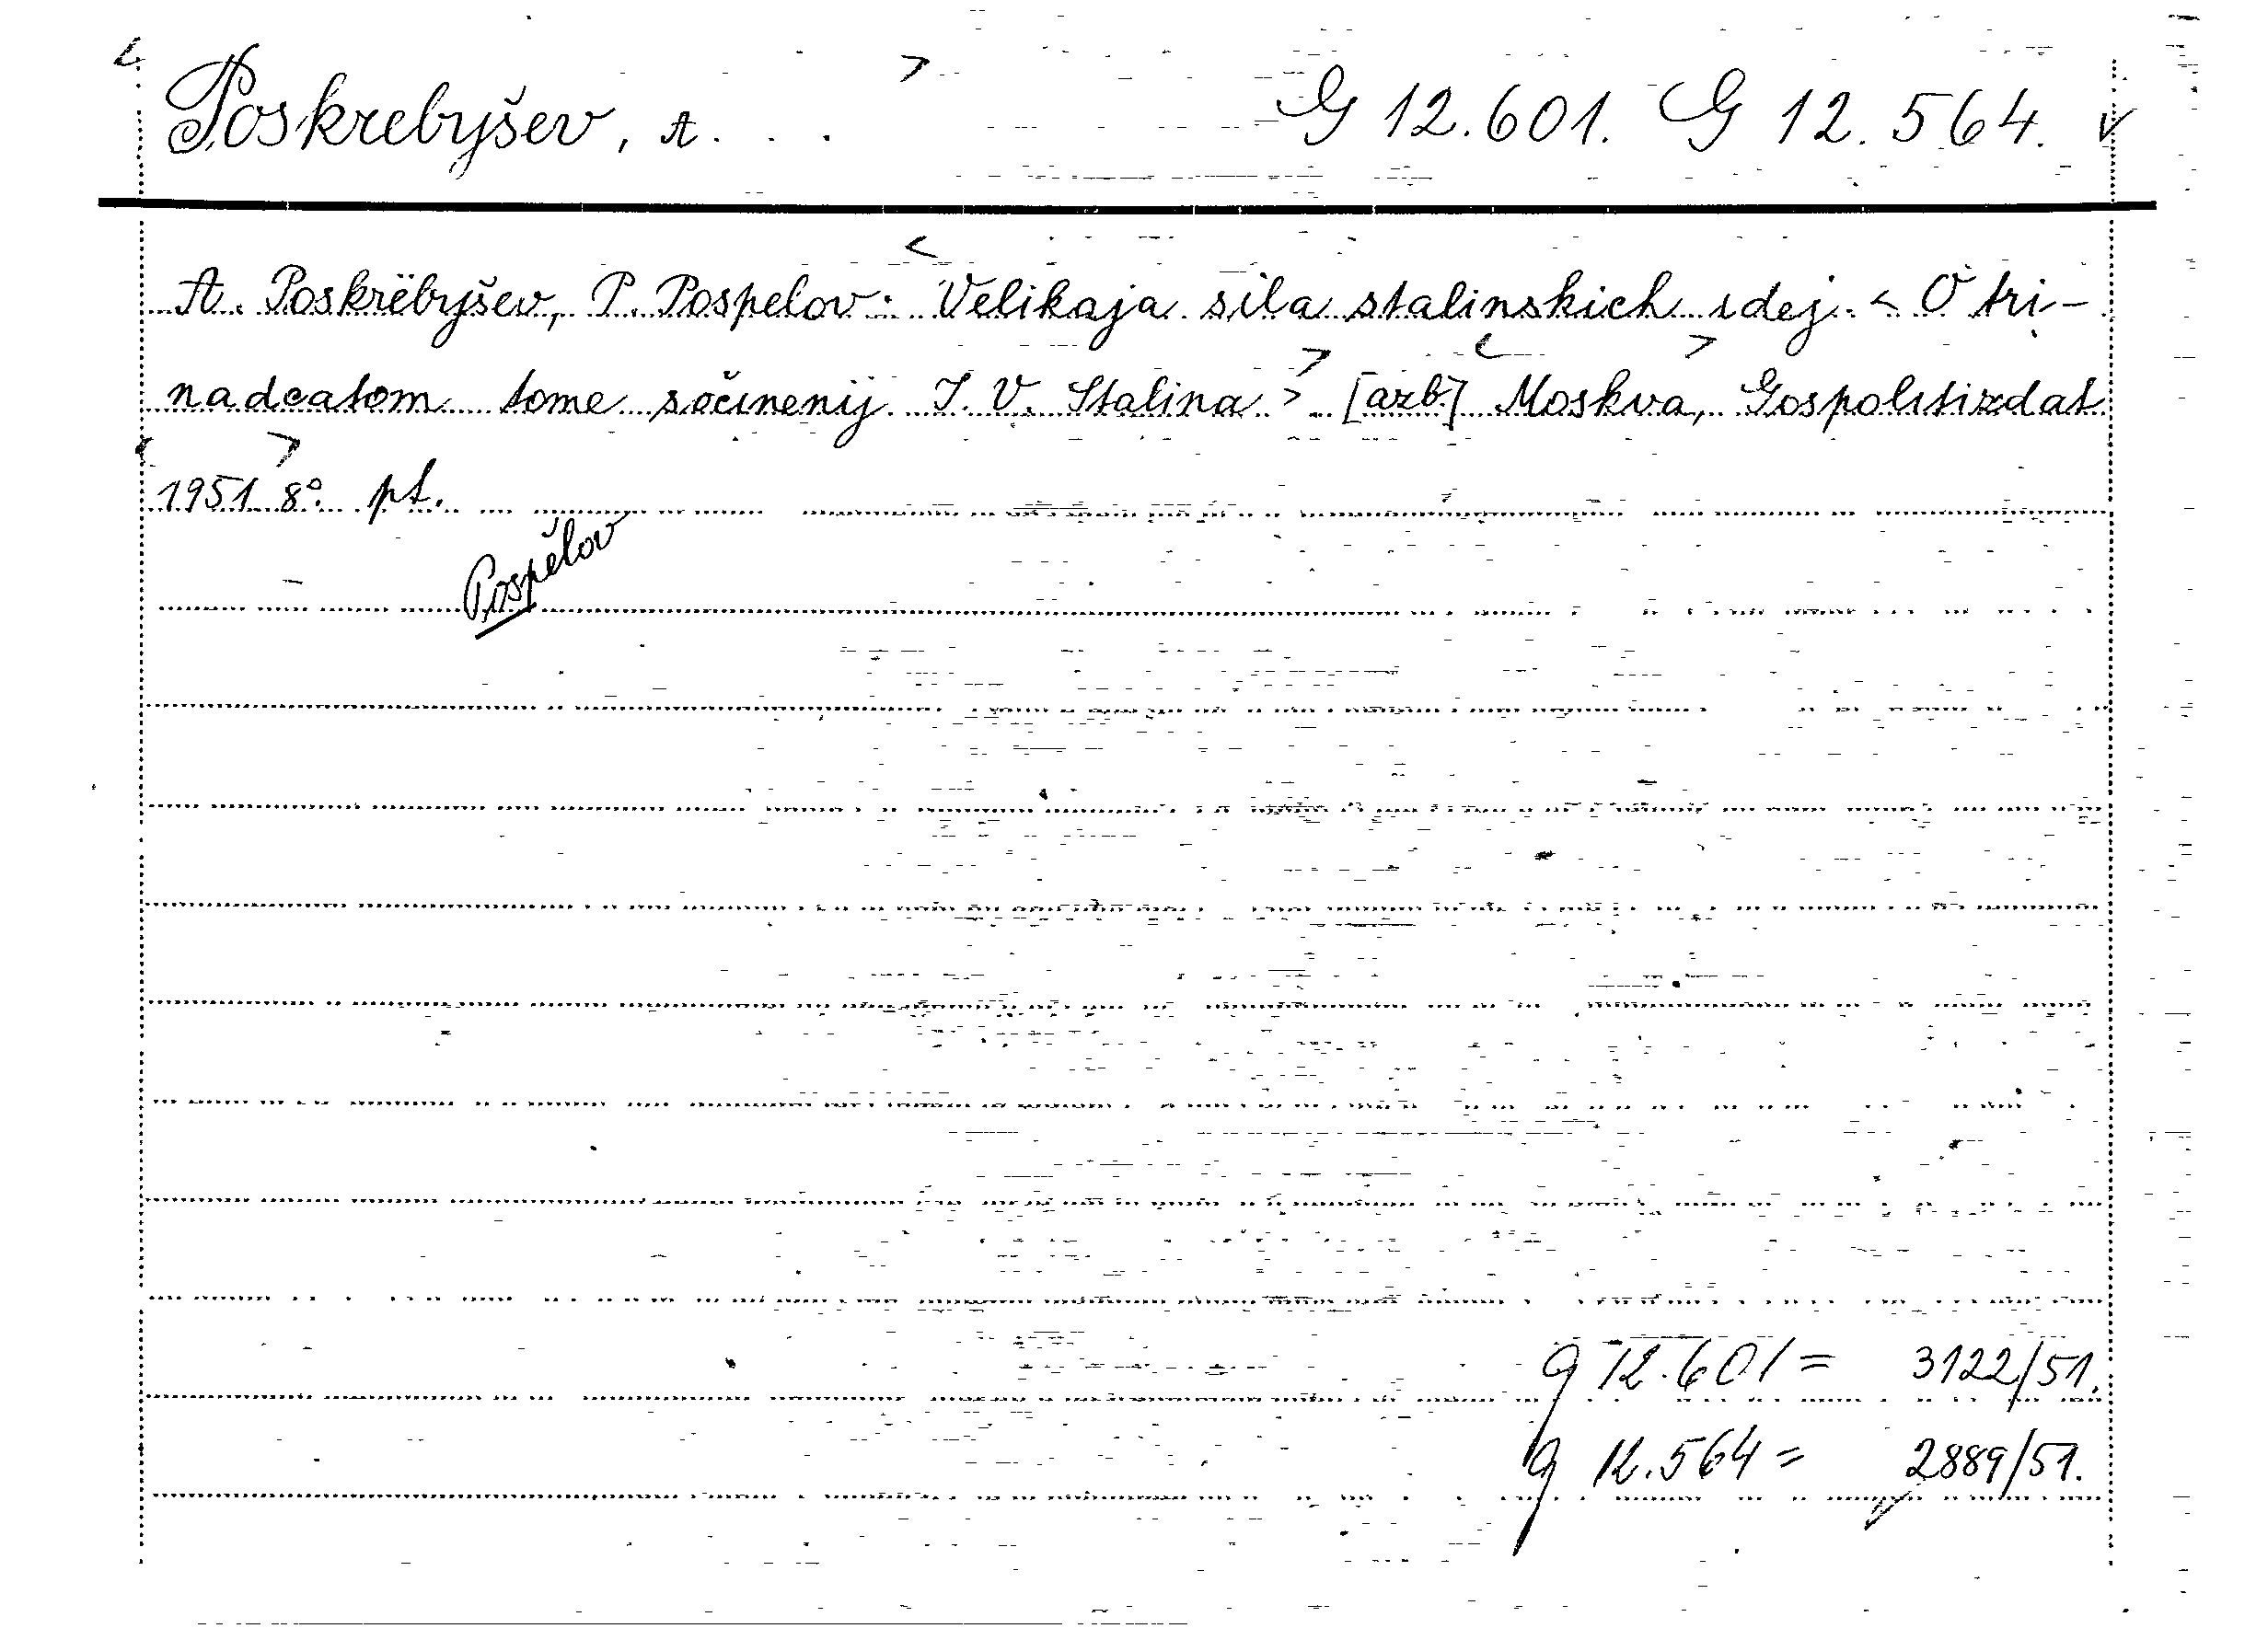 < Poskrebyšev, A. . . > G 12.601. G 12.564. v
<
A. Poskrëbyšev, P. Pospelov: Velikaja sila stalinskich idej. < O tri-
> < >
nadcatom tome sočinenij I. V. Stalina > [azb.] Moskva, Gospolitizdat
< >
1951. 8°. pt.
Pospělov
g 12.601 = 3122/51.
g 12.564 = 2889/51.